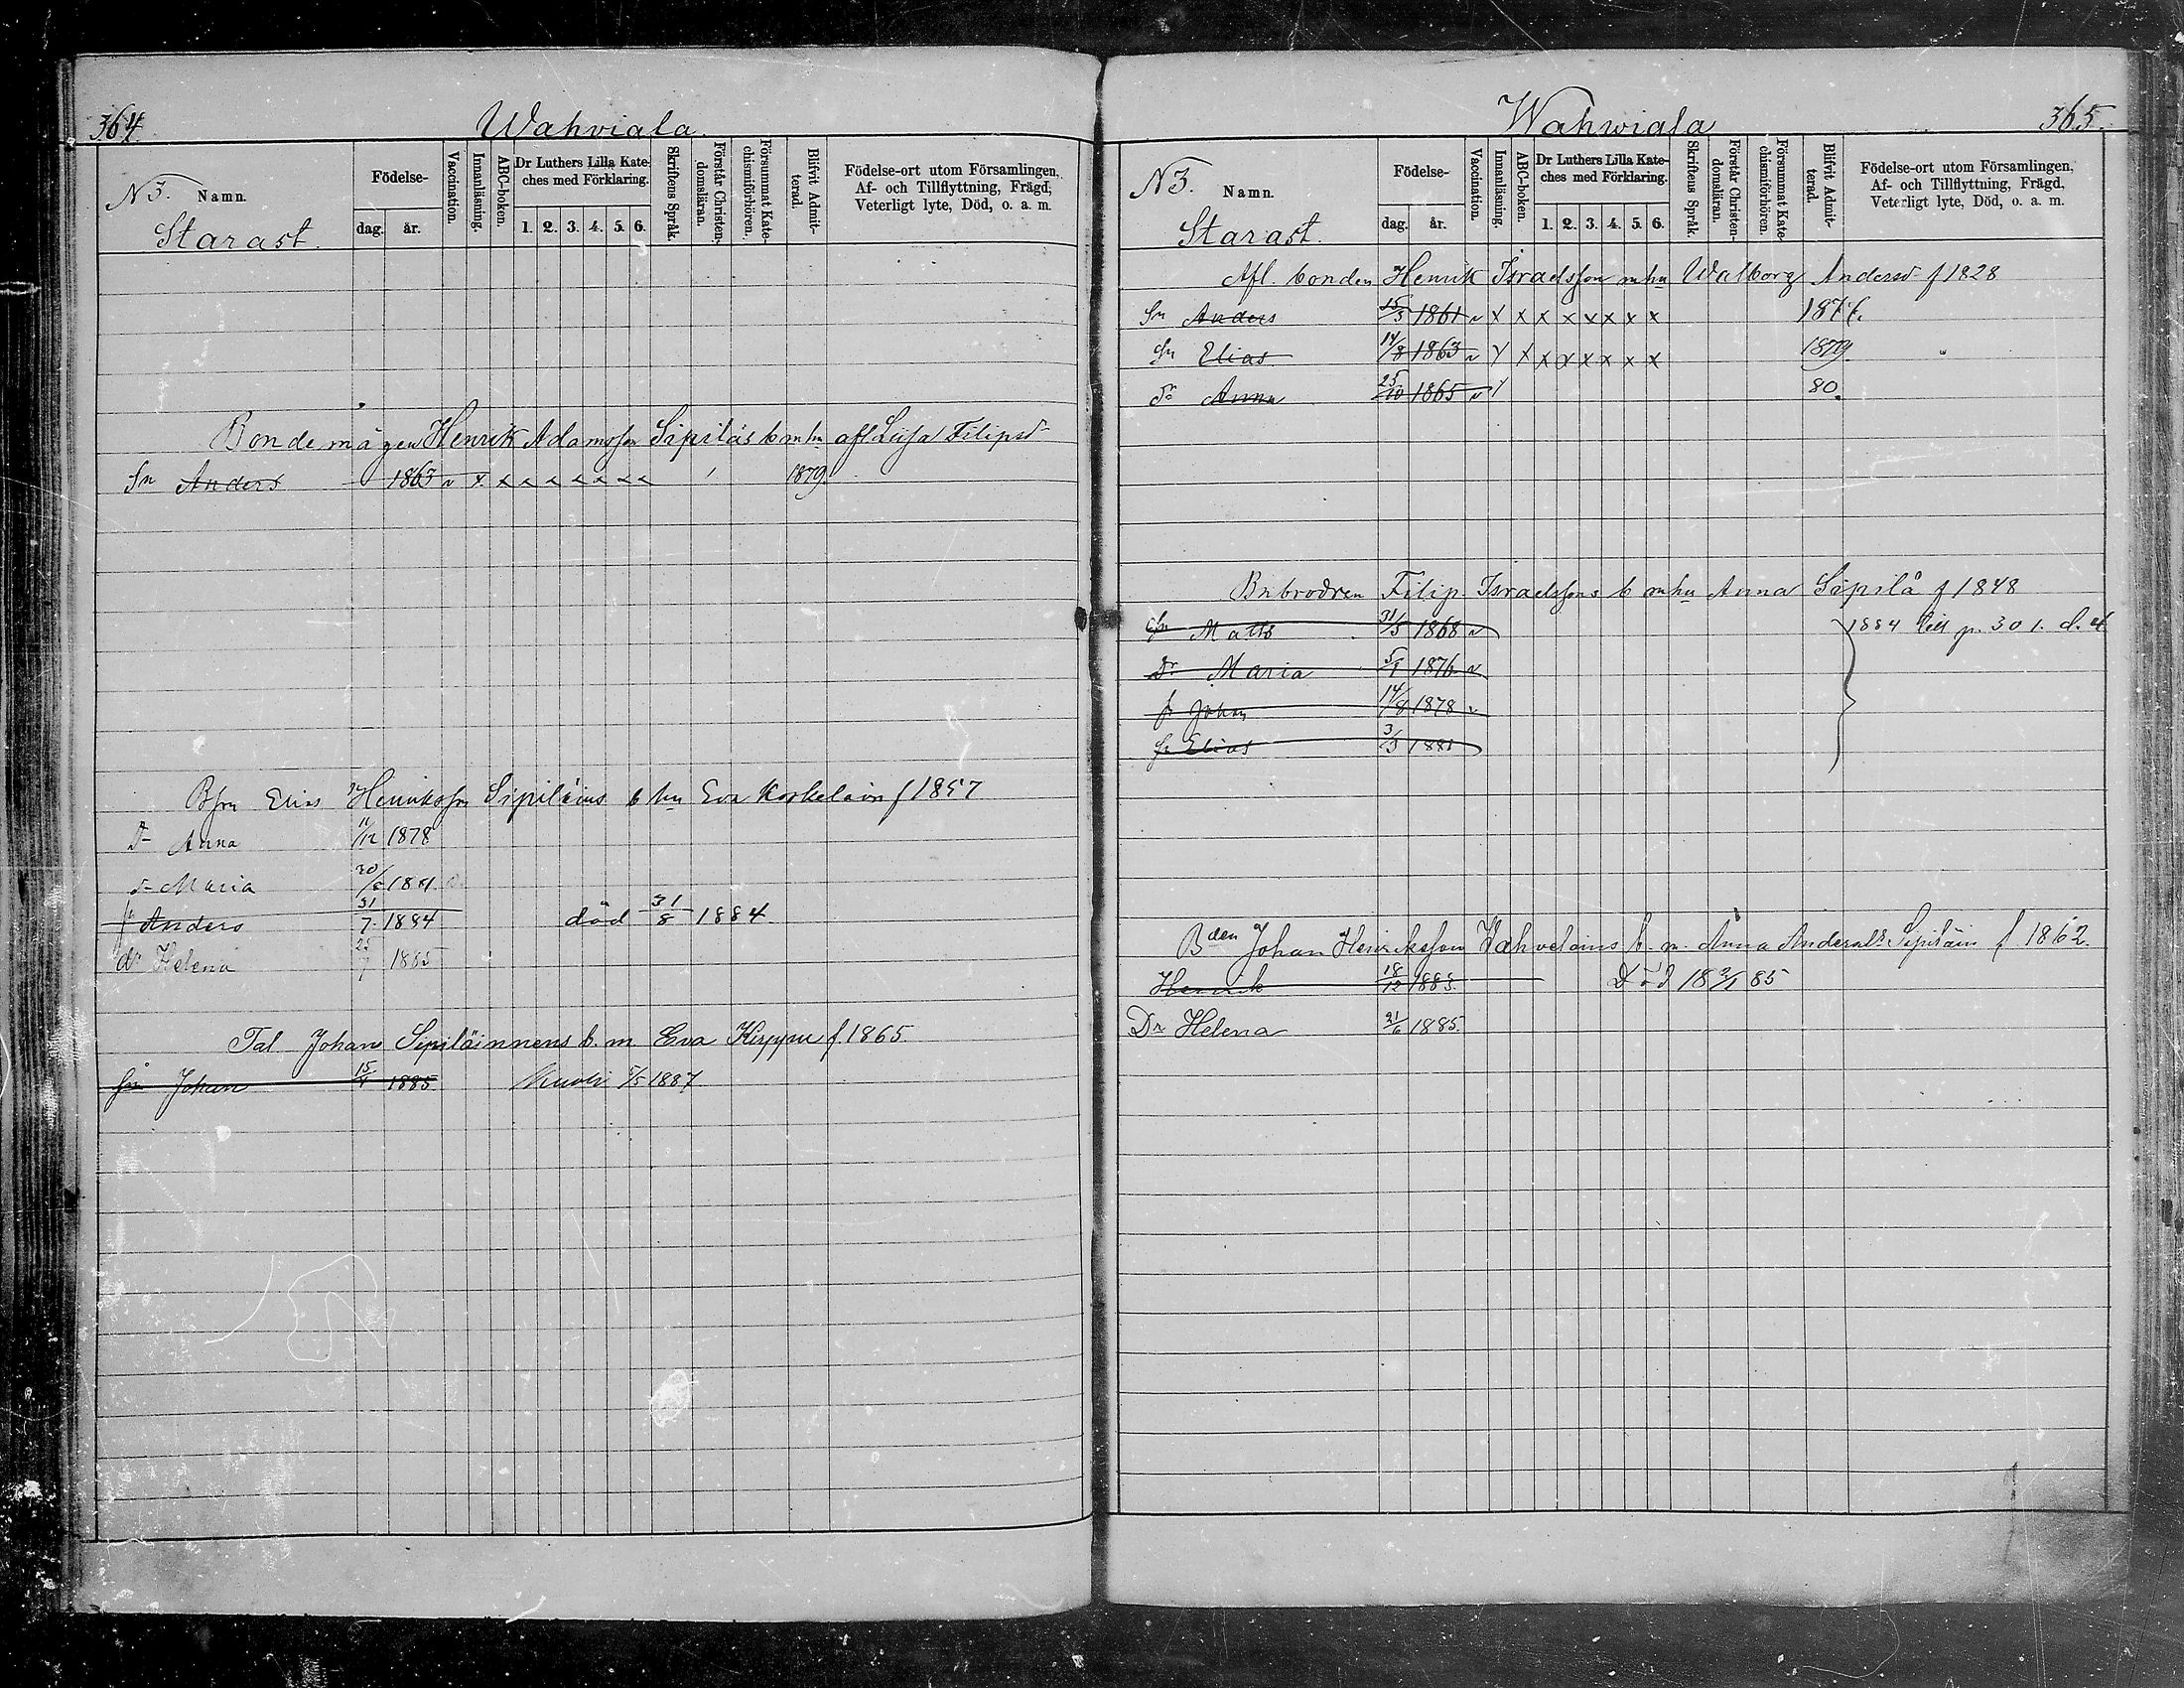 364.
Wahviala.
N 3. Namn.
Starast.
Födelse-
dag. år.
Vaccination.
Innanläsning.
ABC-boken.
Dr Luthers Lilla Kate-
ches med Förklaring.
1. 2. 3. 4. 5. 6.
Skriftens Språk.
Förstår Christen-
domsläran.
Försummat Kate-
chismiförhören.
Blifvit Admit-
terad.
Födelse-ort utom Församlingen,
Af- och Tillflyttning, Frägd,
Veterligt lyte, Död, o. a. m.
Bondemågen Henrik Adamsson Sipiläs b mhu afl Liisa Filipsd
Sn Anders 1863 v x x x x x x x x 1879
Bsn Elias Henriksson Sipiläins b hu Eva Korkelain f 1857
Dr Anna 11/12 1878
dr Maria 20/6 1881.
sn Anders 31/7 1884 död 31/8 1884.
dr Helena 25/7 1885
Tal Johans Sipiläinnens b. m Eva Kirppu f. 1865.
sn Johan 15/4 1885 Kuoli 5/5 1887
Wahwiala
365.
N 3. Namn.
Starast.
Födelse-
dag. år.
Vaccination.
Innanläsning.
ABC-boken.
Dr Luthers Lilla Kate-
ches med Förklaring.
1. 2. 3. 4. 5. 6.
Skriftens Språk.
Förstår Christen-
domsläran.
Försummat Kate-
chismiförhören.
Blifvit Admit-
terad.
Födelse-ort utom Församlingen,
Af- och Tillflyttning, Frägd,
Veterligt lyte, Död, o. a. m.
Afl. bonden Henrik Israelsson mhu Walborg Andersd f 1828
Sn Anders 15/5 1861 v x x x x x x x x
Sn Elias 14/8 1863 v x x x x x x x x 1879.
Dr Anna 25/10 1865 v x 80.
Bnbrodren Filip Israelssons b mhu Anna Sipilä f 1848
Sn Matts 31/5 1868 v 1884 till p. 301. d. 4
Dr Maria 5/1 1876 v
sn Johan 14/8 1878 v
sn Elias 3/3 1881
Bden Johan Henrikssson Wahvelains b. m. Anna Andersdr Sipiläin f 1862.
Henrik 18/12 1883. Död 18 2/1 85
Dr Helena 21/6 1885.